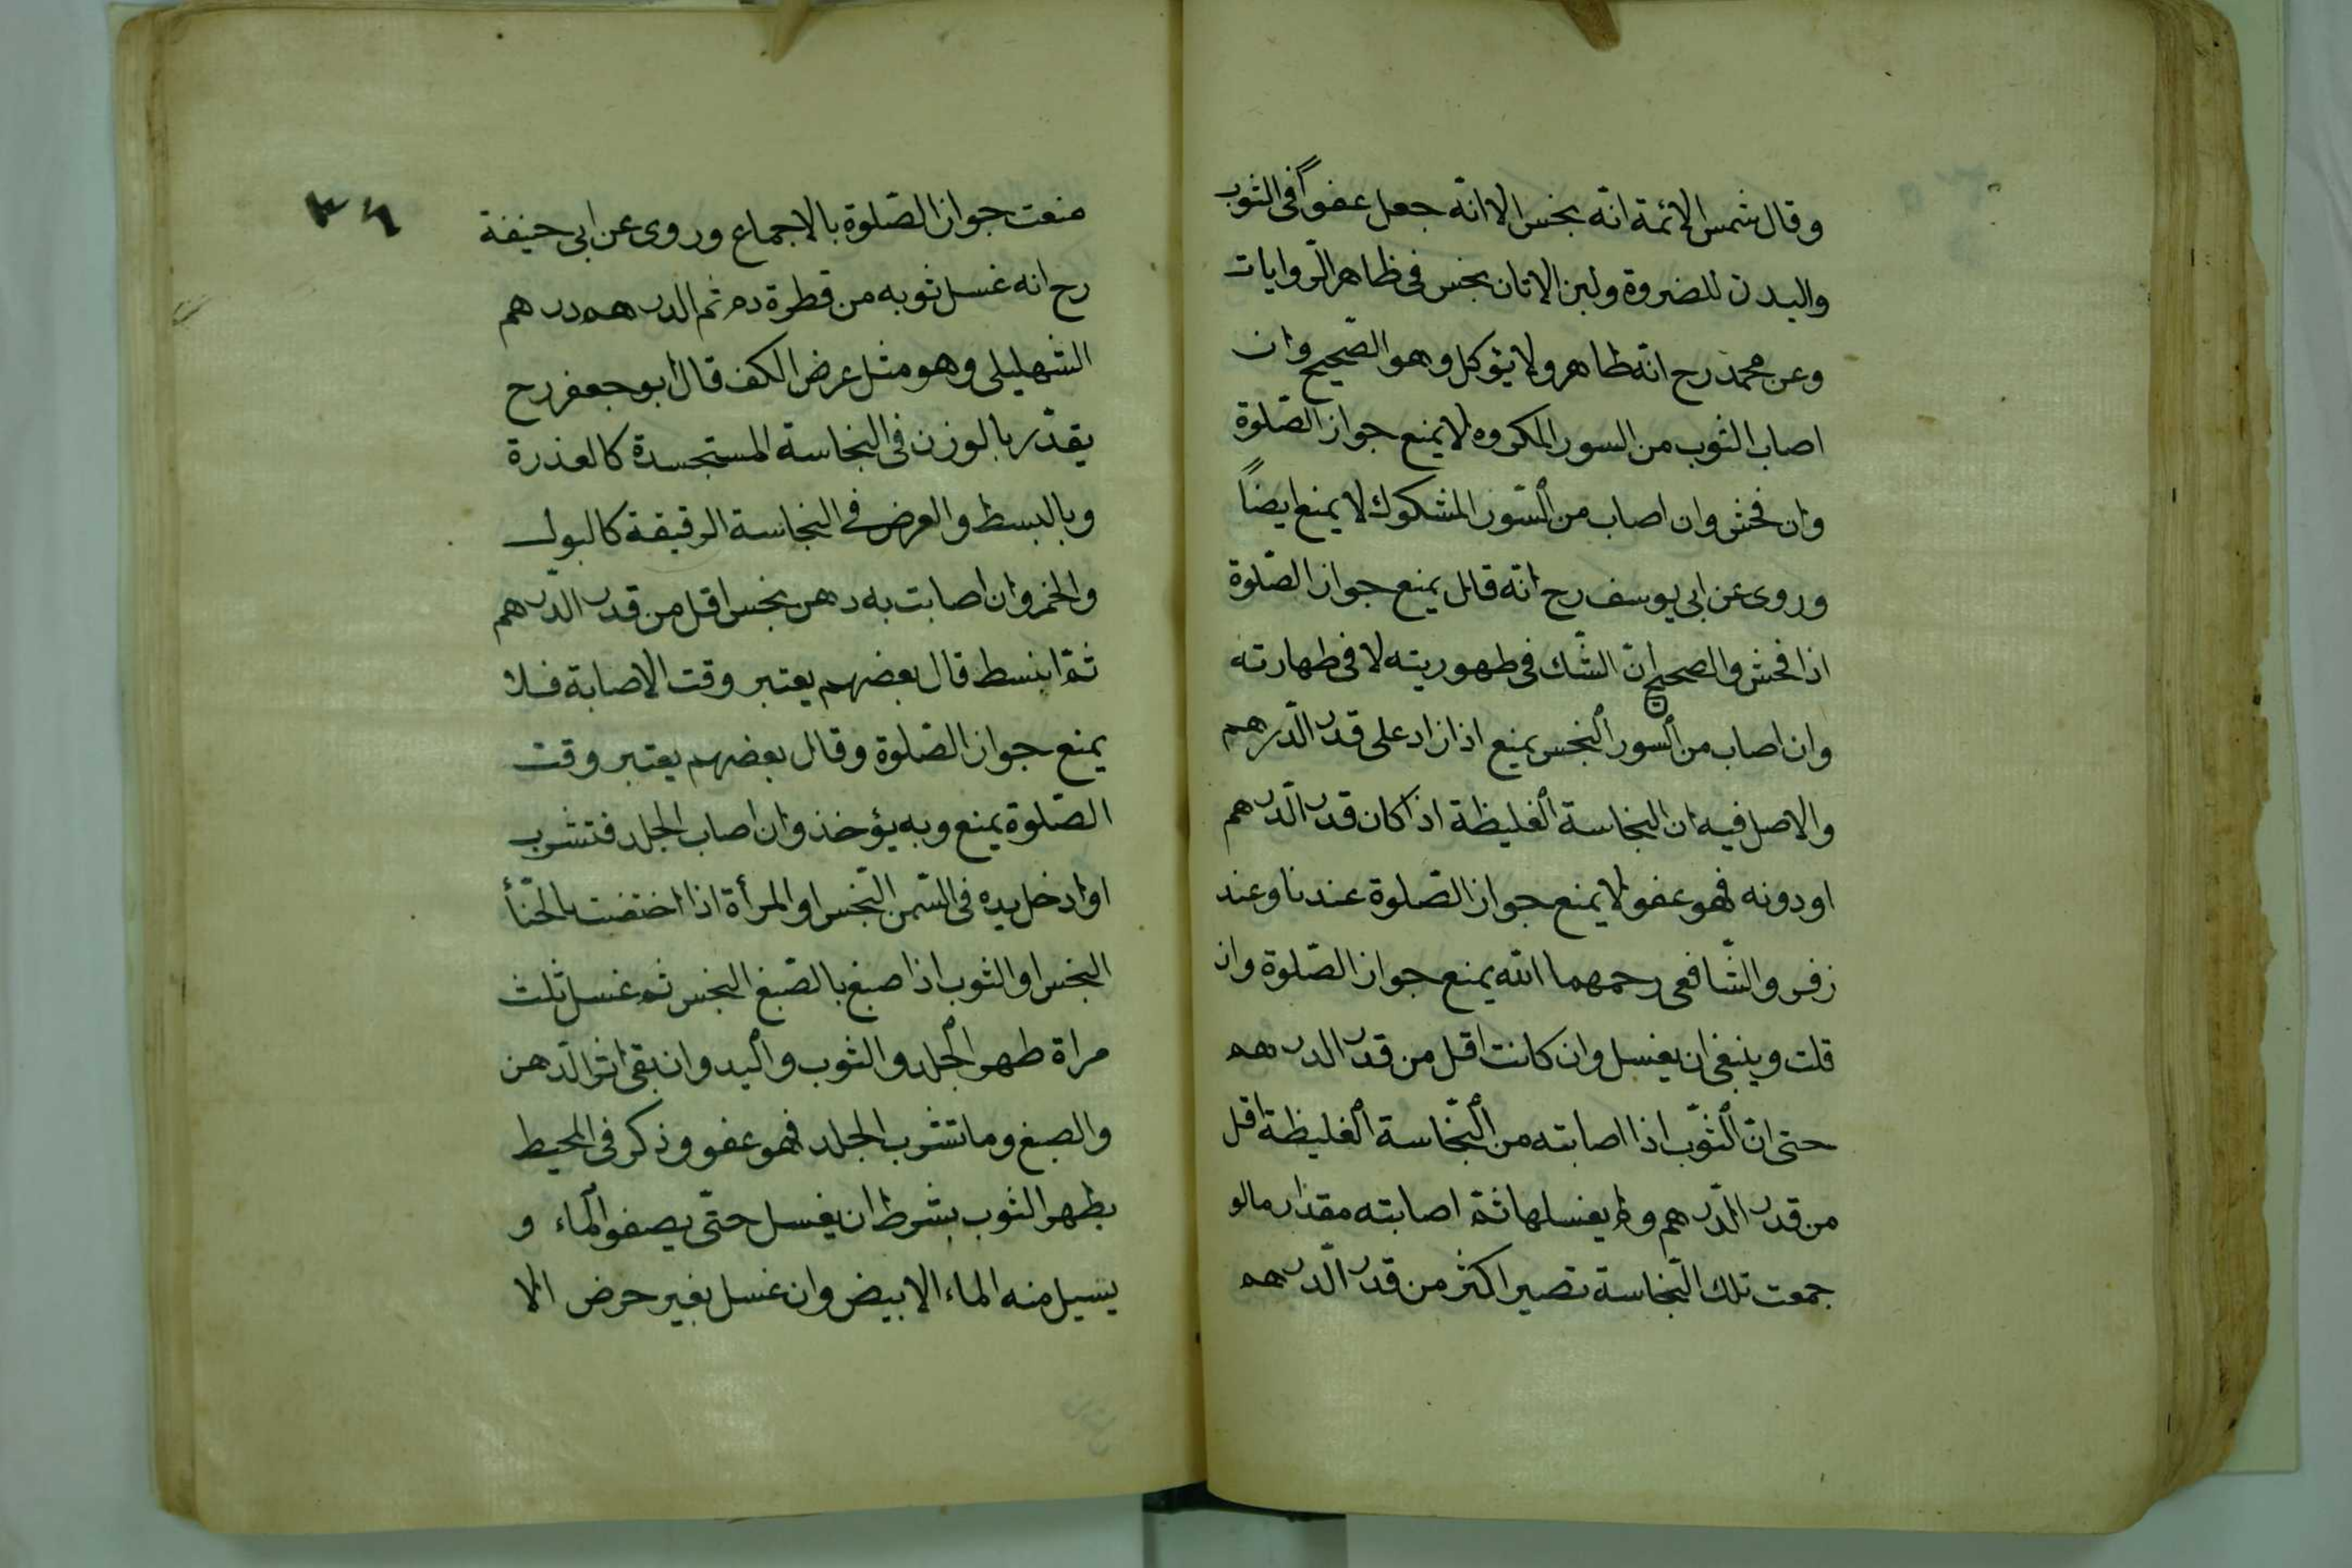 وقال شمس الائمة انه نجس الا انّه جعل عفواً فى الثوب
والبدن للضروة ولبن الاتان نجس فى ظاهر الرّوايات
وعن محمد رح انّه طاهر ولا يؤكل وهو الصّحيح وان
اصاب الثوب من السور المكروه لا يمنع جواز الصّلوة
وان فحش وان اصاب من السّور المشكوك لا يمنع ايضاً
وروى عن ابى يوسف رح انّه قال يمنع جواز الصّلوة
اذا فحش والصحيح انّ الشّك فى طهوريته لا فى طهارته
وان اصاب من السور النجس يمنع اذا زاد على قدر الدّرهم
والاصل فيه ان النجاسة الغليظة اذا كان قدر الدّرهم
او دونه فهو عفو لا يمنع جواز الصّلوة عندنا وعند
زفر والشّافعى رحمهما الله يمنع جواز الصّلوة وان
قلت وينبغى ان يغسل وان كانت اقل من قدر الدرهم
حتى انّ الثوّب اذا اصابته من النّجاسة الغليظة اقل
من قدر الدّرهم ولم يغسلها ثمّ اصابته مقدار مالو
جمعت تلك النّجاسة تصير اكثر من قدر الدّرهم
٣٦
منعت جواز الصّلوة بالاجماع وروى عن ابى حنيفة
رح انه غسل ثوبه من قطرة دم ثم الدرهم درهم
الشهليلى وهو مثل عرض الكف قال ابو جعفر رح
يقدّر بالوزن فى النجاسة المستجسدة كالعذرة
وبالبسط والعرض فى النجاسة الرقيقة كالبول
والخمر وان اصابت به دهن نجس اقل من قدر الدّرهم
ثمّ انبسط قال بعضهم يعتبر وقت الاصابة فلا
يمنع جواز الصّلوة وقال بعضهم يعتبر وقت
الصّلوة يمنع وبه يؤخذ وان اصاب الجلد فتشرب
او ادخل يده فى السّمن النّجس او المرأة اذا اختضت بالحنّأ
النجس او الثوب اذا صبغ بالصّبغ النجس ثم غسل ثلث
مراة طهر الجلد والثوب واليد وان بقى اثر الدّهن
والصبغ وما تشرب الجلد فهو عفو وذكر فى المحيط
يطهر الثوب بشرط ان يغسل حتّى يصفو الماء و
يسيل منه الماء الابيض وان غسل بغير حرض الا